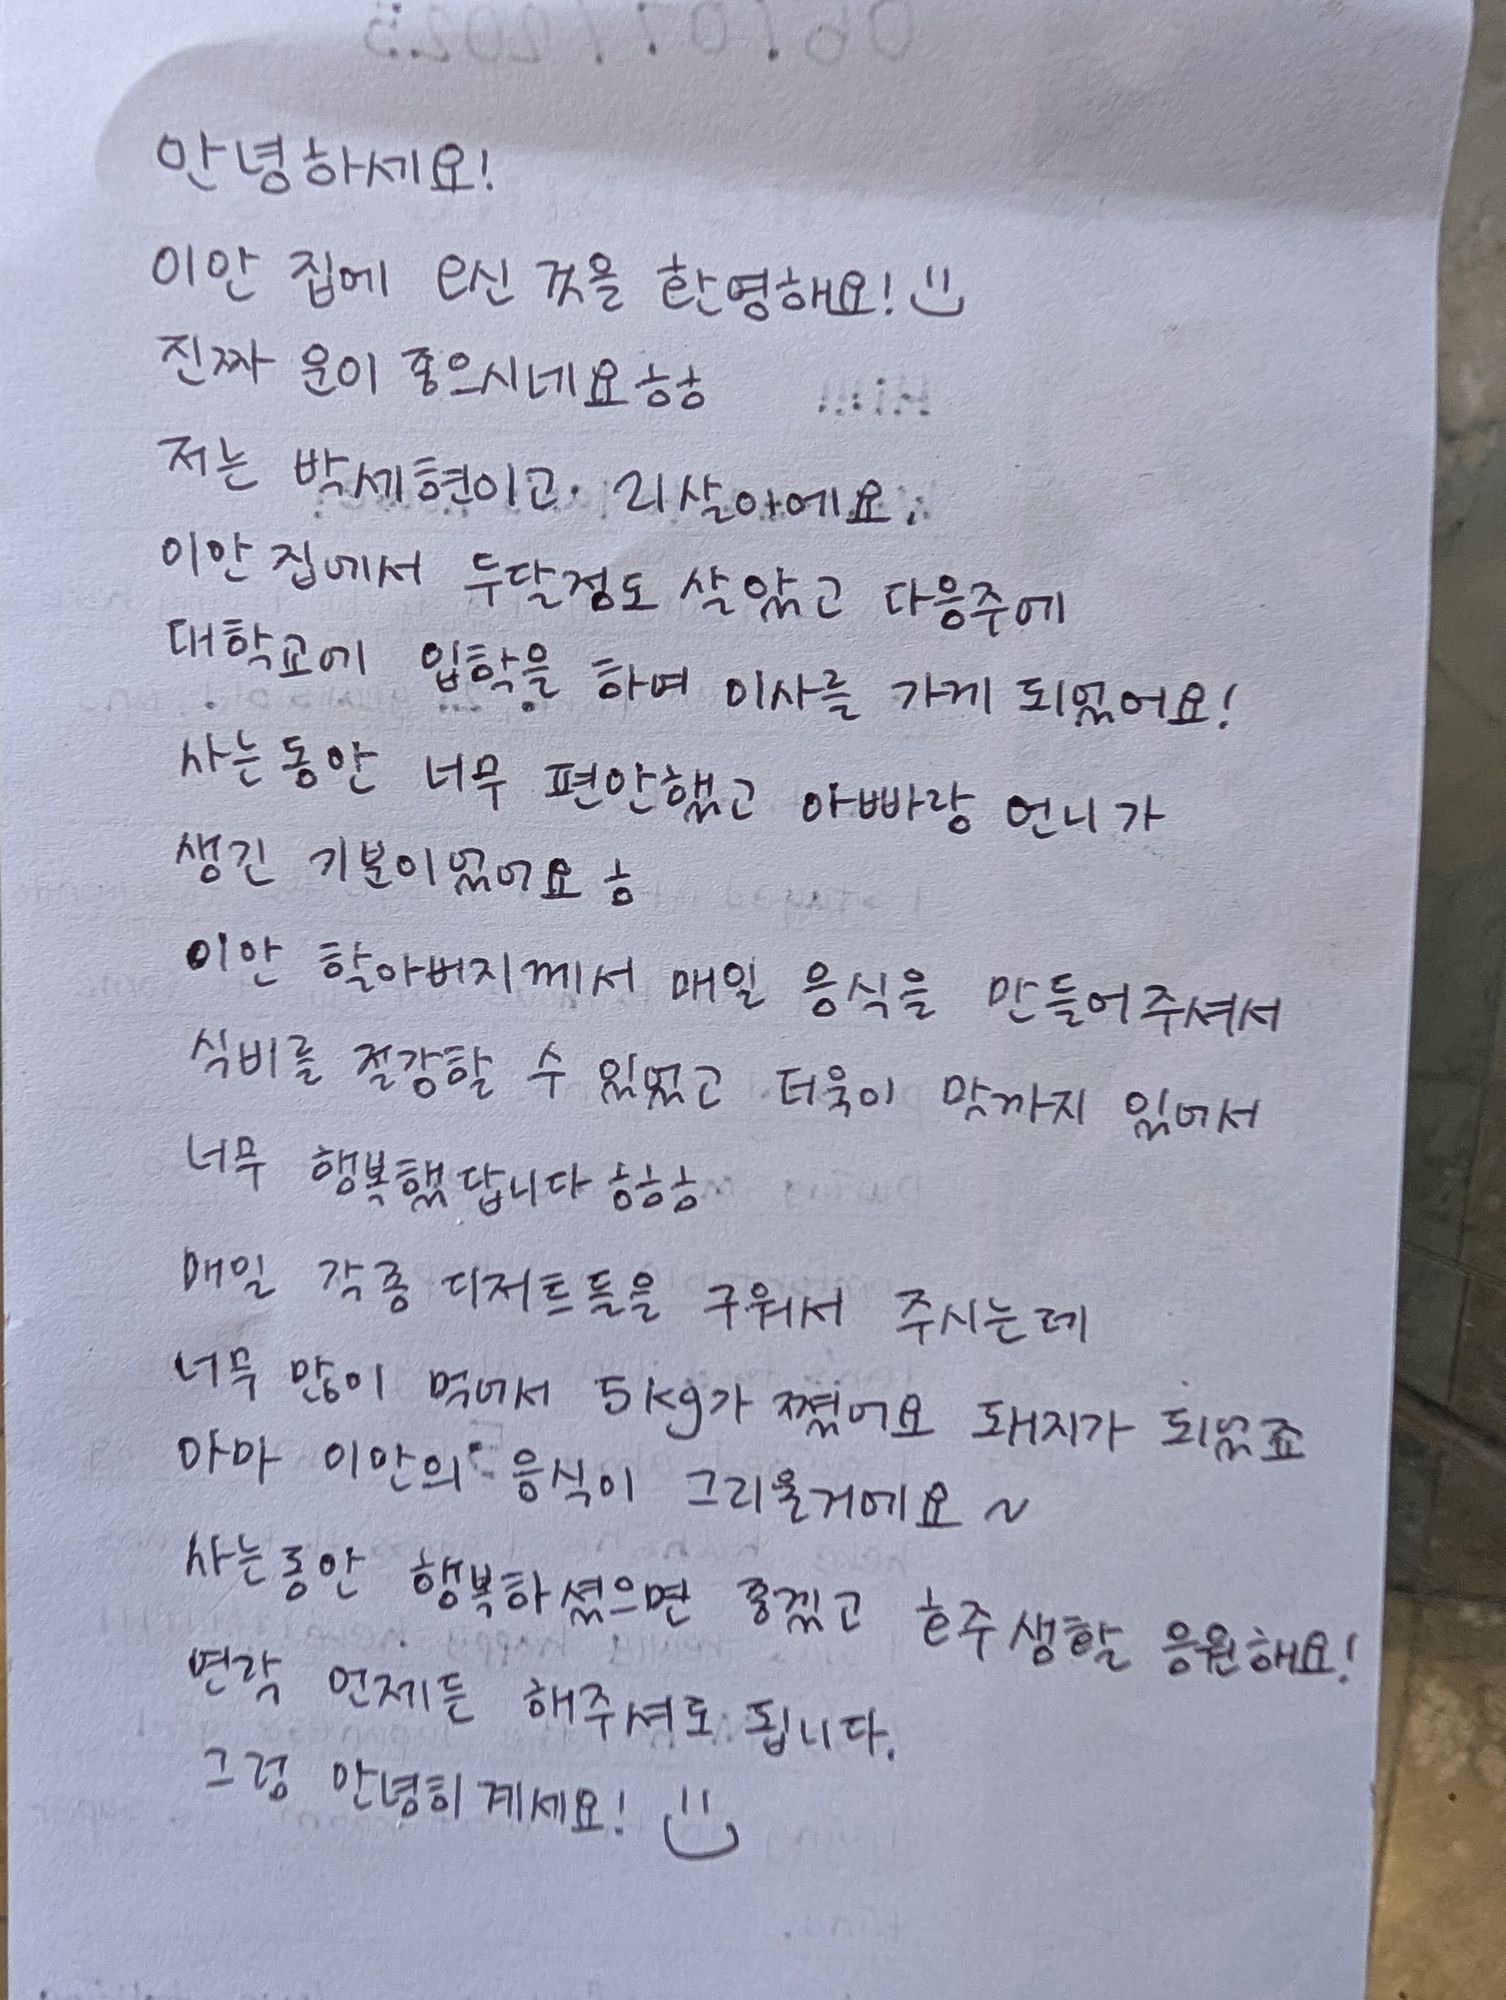 안녕하세요!
이안 집에 오신 것을 환영해요!
진짜 운이 좋으시네요ㅎㅎ
저는 박세현이고. 21살이에요.
이안 집에서 두달정도 살았고 다음주에
대학교에 입학을 하며 이사를 가게 되었어요!
사는동안 너무 편안했고 아빠랑 언니가
생긴 기분이었어요 ㅎ
이안 할아버지께서 매일 음식을 만들어주셔서
식비를 절강할 수 있었고 더욱이 맛까지 있어서
너무 행복했답니다 ㅎㅎㅎ
매일 각종 디저트들을 구워서 주시는데
너무 많이 먹어서 5kg가 쪘어요 돼지가 되었죠
아마 이안의 음식이 그리울거에요 ~
사는동안 행복하셨으면 좋겠고 호주생활 응원해요!
연락 언제든 해주셔도 됩니다.
그럼 안녕히계세요!